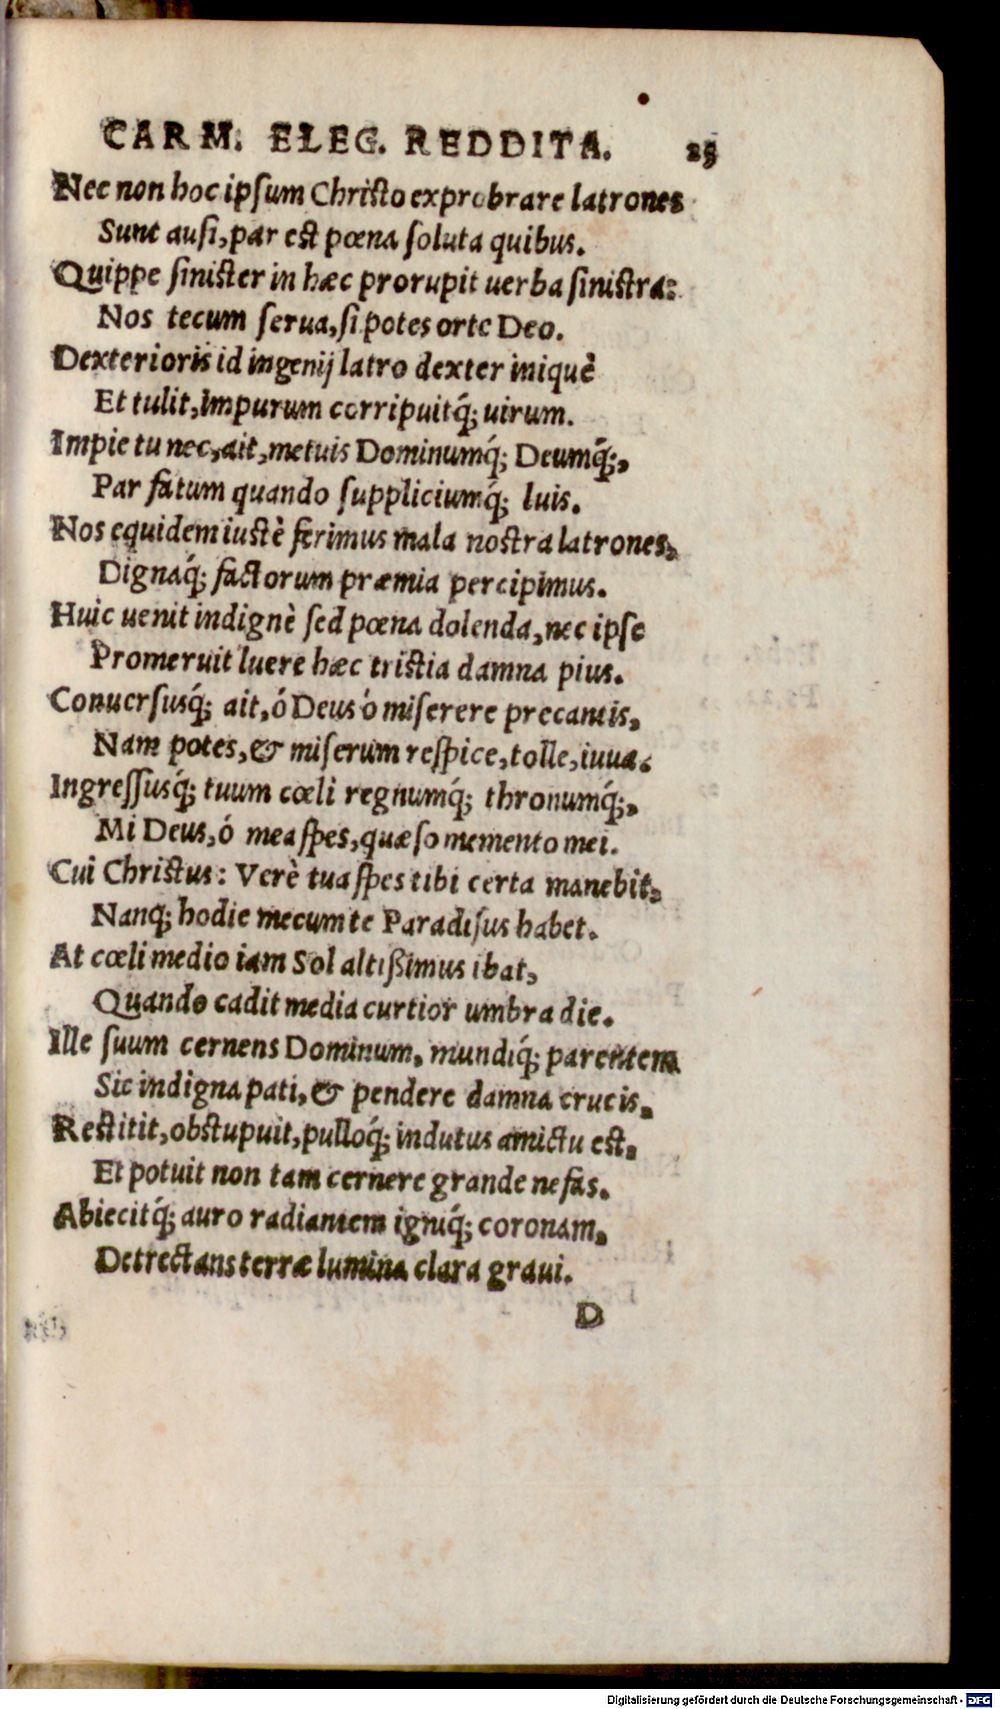 CARM. ELEG. REDDITA. 25
Nec non hoc ipſum Chriſto exprobrare latrones
Sunt auſi, par eſt pœna ſoluta quibus.
Quippe ſiniſter in hæc prorupit uerba ſiniſtra:
Nos tecum ſerua, ſi potes orte Deo.
Dexterioris id ingenij latro dexter iniquè
Et tulit, impurum corripuitq́; uirum.
Impie tu nec, ait, metuis Dominumq́; Deumq́;,
Par fatum quando ſuppliciumq́; luis.
Nos equidem iuſtè ferimus mala noſtra latrones,
Dignaq́; factorum præmia percipimus.
Huic uenit indignè ſed pœna dolenda, nec ipſe
Promeruit luere hæc triſtia damna pius.
Conuerſusq́; ait, ó Deus ó miſerere precantis,
Nam potes, & miſerum reſpice, tolle, iuua.
Ingreſſusq́; tuum cœli regnumq́; thronumq́;,
Mi Deus, ó mea ſpes, quæſo memento mei.
Cui Chriſtus: Verè tua ſpes tibi certa manebit,
Nanq; hodie mecum te Paradiſus habet.
At cœli medio iam Sol altißimus ibat,
Quando cadit media curtior umbra die.
Ille ſuum cernens Dominum, mundiq́; parentem
Sic indigna pati, & pendere damna crucis,
Reſtitit, obſtupuit, pulloq́; indutus amictu eſt,
Et potuit non tam cernere grande nefas.
Abiecitq́; auro radiantem igniq́; coronam,
Detrectans terræ lumina clara graui.
D
Digitalisierung gefördert durch die Deutsche Forschungsgemeinschaft - DFG